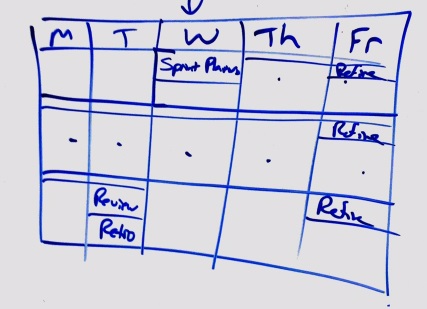 M T W Th Fr
Sprint Refine
Refine
Review Refine
Retro